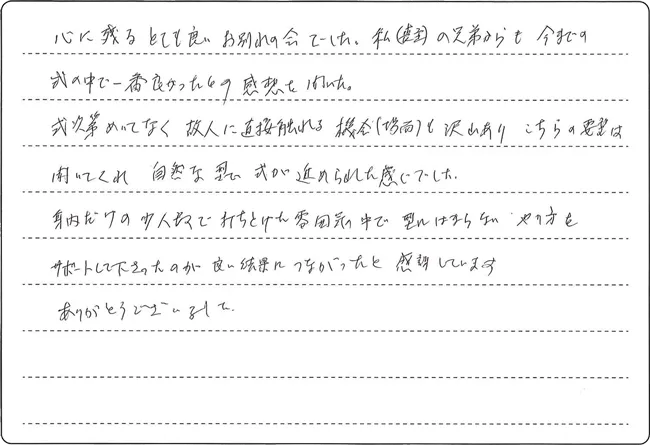 心に残るとても良いお別れの会でした。私(喪主)の兄弟からも今までの
式の中で一番良かったとの感想を聞いた。
式次第めいてなく故人に直接触れる機会(場面)も沢山ありこちらの要望は
聞いてくれ 自然な形で式が進められた感じでした。
身内だけの少人数で打ちとけた雰囲気の中で型にはまらないやり方を
サポートして下さったのが良い結果につながったと感謝しています
ありがとうございました。